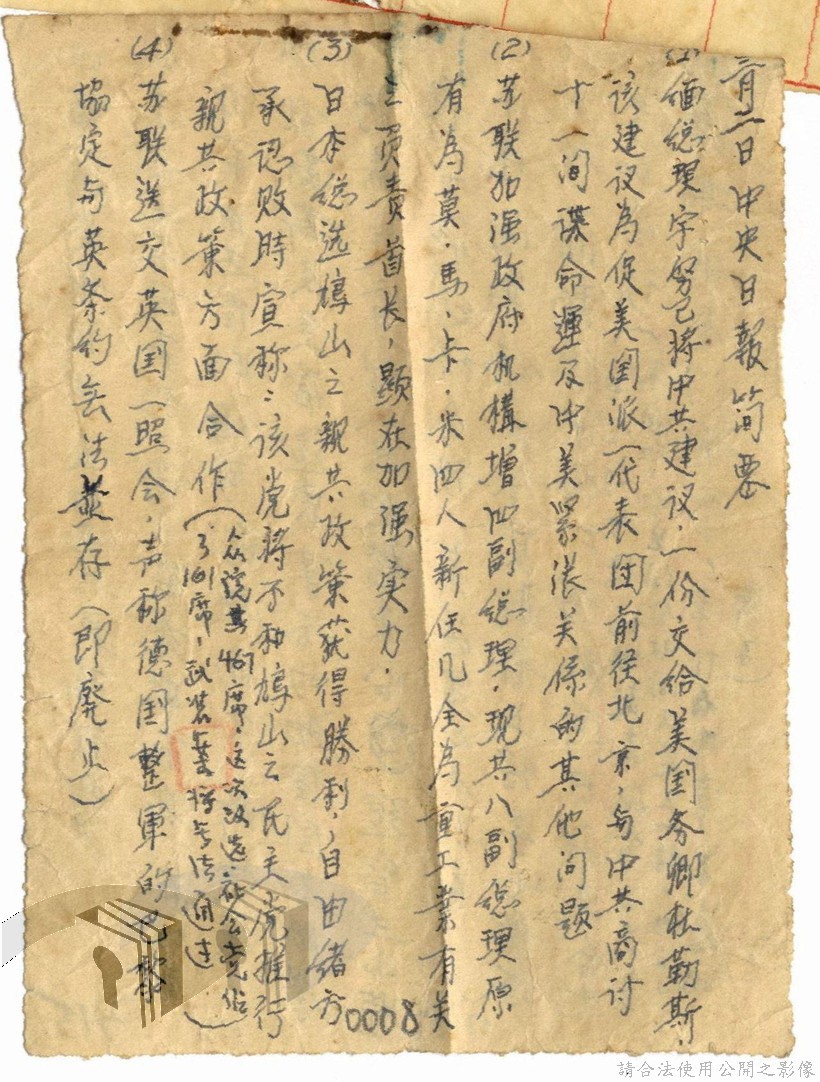 三月二日中央日報简要
(1) 缅总理宇努已将中共建议,一份交给美国务卿杜勒斯,
该建议为促美国派一代表团前往北京,与中共商讨
十一间谍命運及中美紧张关係的其他问题
(2) 苏联加强政府机構增四副总理,現共八副总理原
有為莫.馬.卡.米四人新任几全為重工業有关
之负责首长,顕在加强实力.
(3) 日本总选鳩山之親共政策获得勝利,自由緒方
承認败時宣称:该党将不和鳩山之民主党推行
親共政策方面合作(众院其467席,这次改选社会党佔
了161席,武装 将无法通过)
(4) 苏联送交英国一照会,声称德国整軍的巴黎
協定与英条约无法並存(即廢止)
0008
請合法使用公開之影像